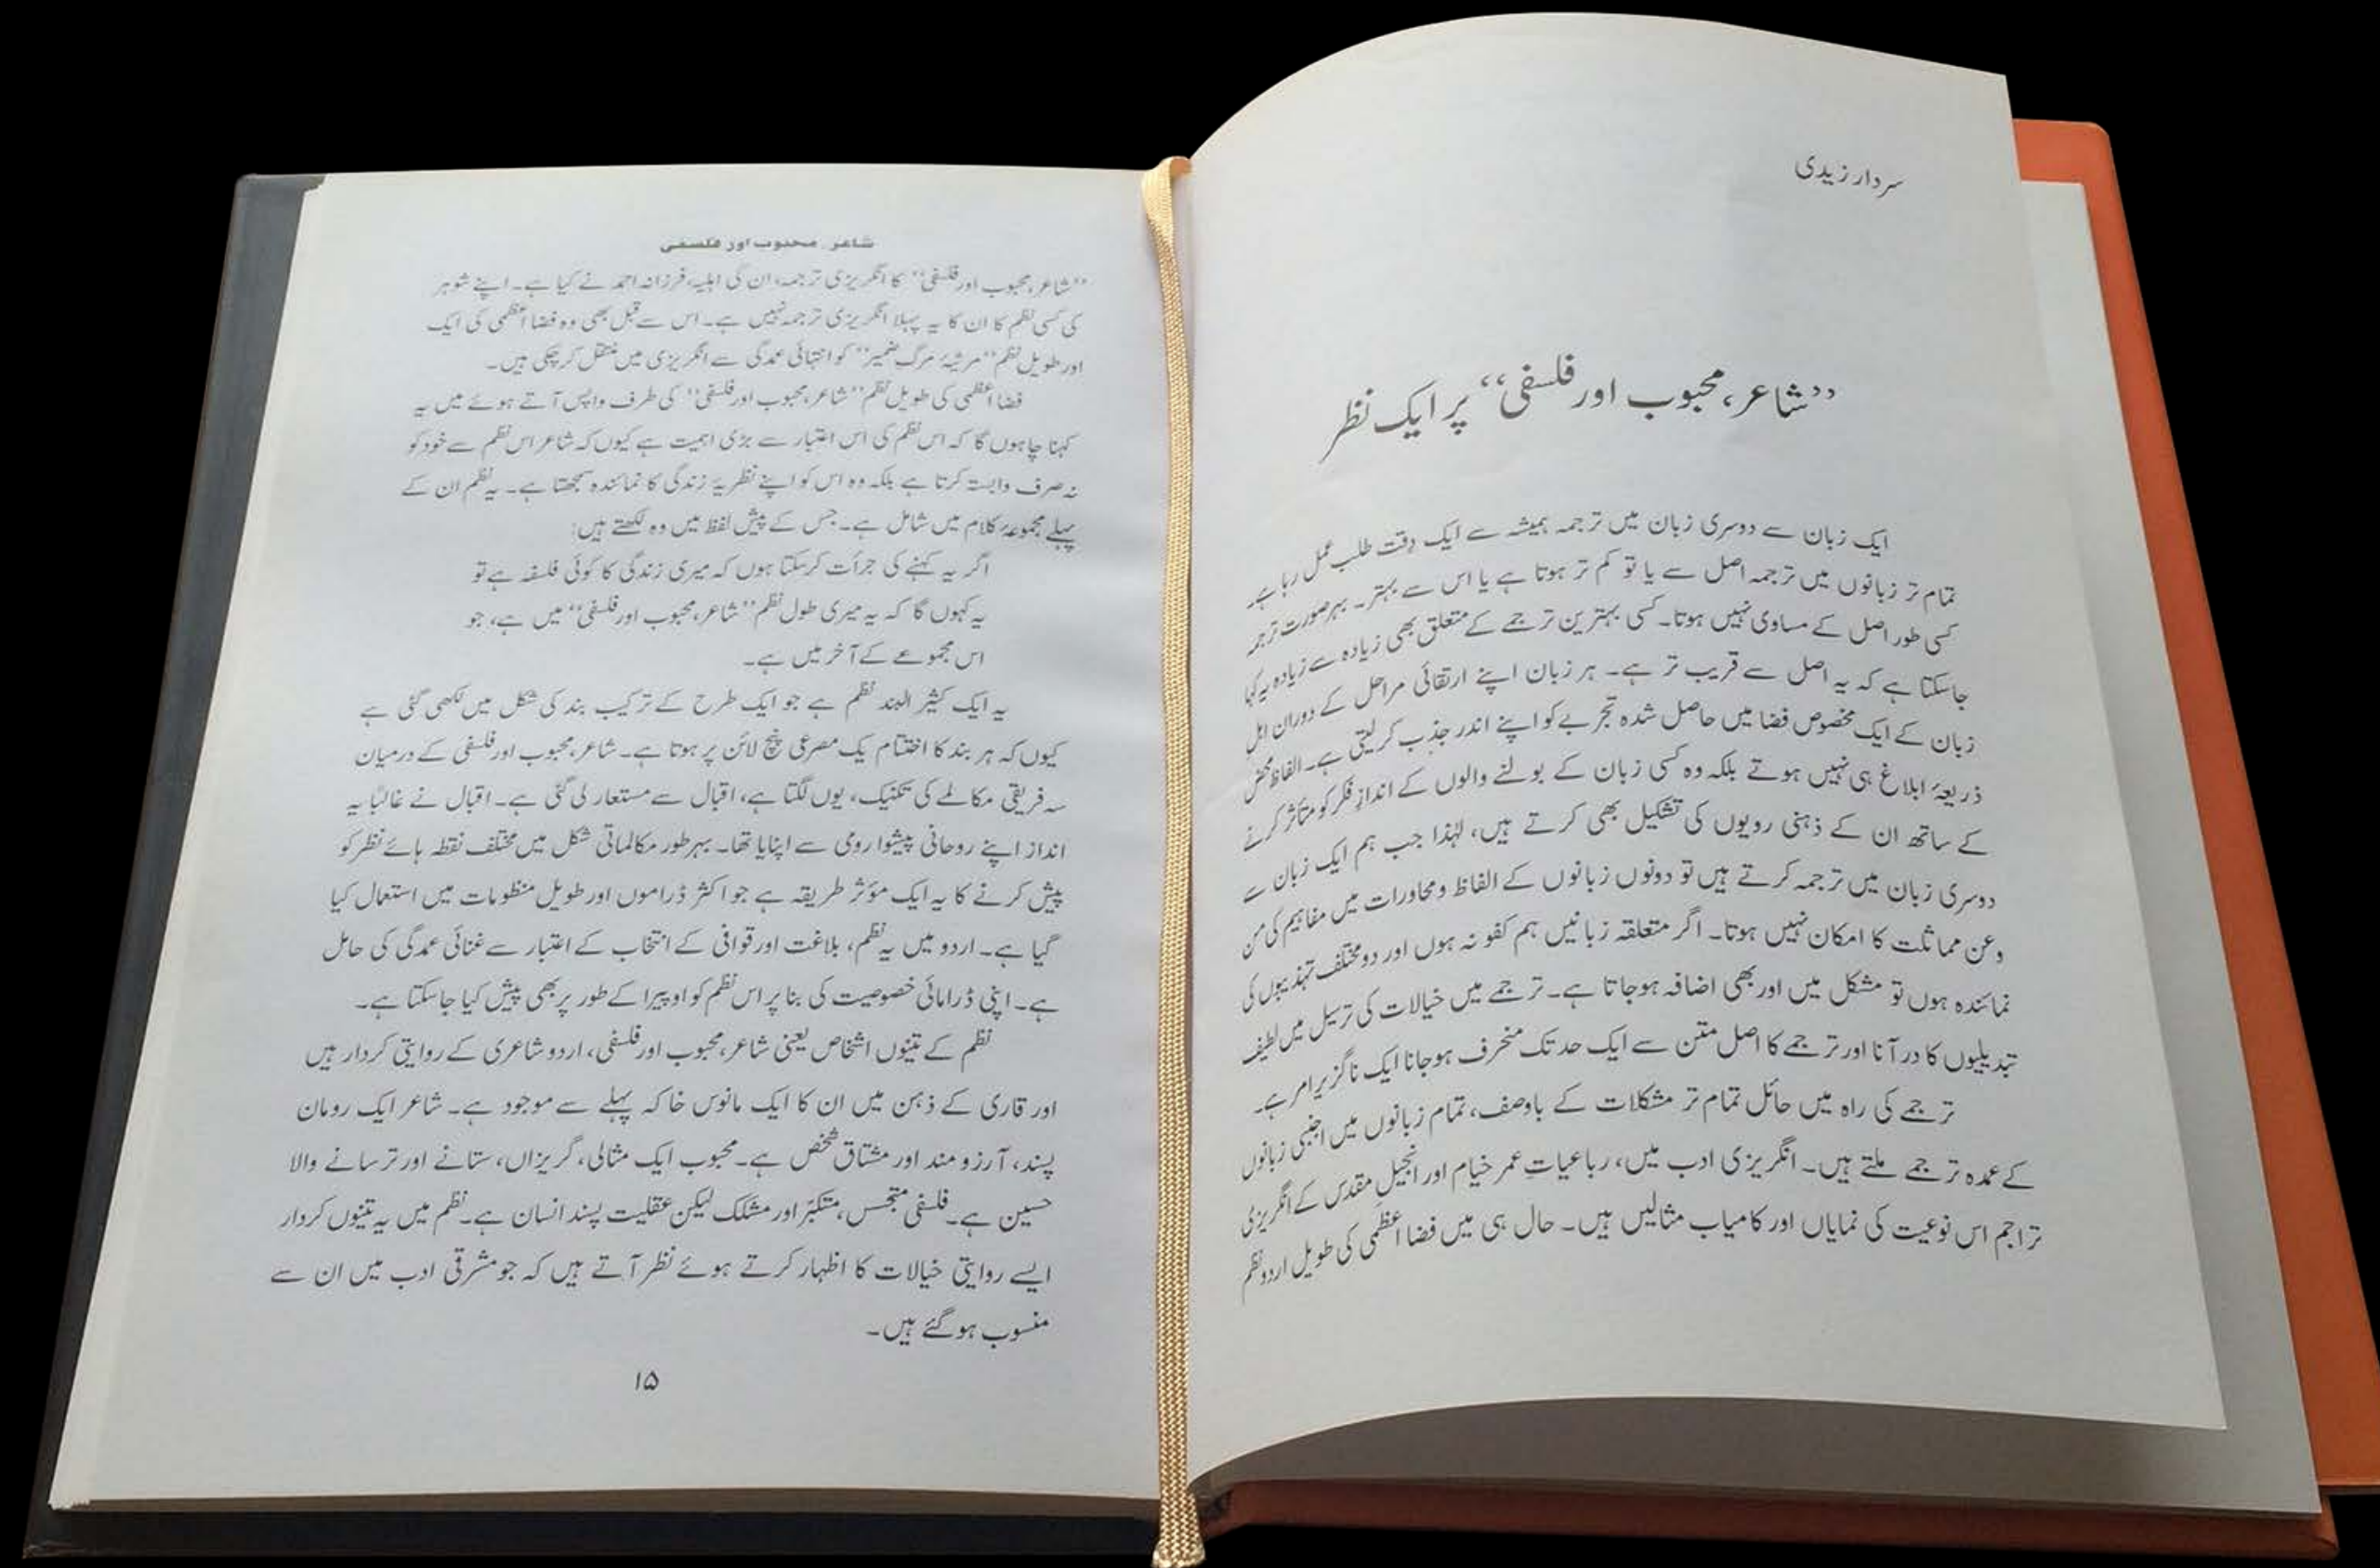 سردار زیدی
’’شاعر، محبوب اور فلسفی‘‘ پر ایک نظر
ایک زبان سے دوسری زبان میں ترجمہ ہمیشہ سے ایک دِقت طلب عمل رہا ہے۔
تمام تر زبانوں میں ترجمہ اصل سے یا تو کم تر ہوتا ہے یا اس سے بہتر۔ بہرصورت ترجمہ
کسی طور اصل کے مساوی نہیں ہوتا۔ کسی بہترین ترجمے کے متعلق بھی زیادہ سے زیادہ یہ کہا
جاسکتا ہے کہ یہ اصل سے قریب تر ہے۔ ہر زبان اپنے ارتقائی مراحل کے دوران اہلِ
زبان کے ایک مخصوص فضا میں حاصل شدہ تجربے کو اپنے اندر جذب کرلیتی ہے۔ الفاظ محض
ذریعۂ ابلاغ ہی نہیں ہوتے بلکہ وہ کسی زبان کے بولنے والوں کے اندازِ فکر کو متاثر کرنے
کے ساتھ ان کے ذہنی رویوں کی تشکیل بھی کرتے ہیں، لہٰذا جب ہم ایک زبان سے
دوسری زبان میں ترجمہ کرتے ہیں تو دونوں زبانوں کے الفاظ و محاورات میں مفاہیم کی من
و عن مماثلت کا امکان نہیں ہوتا۔ اگر متعلقہ زبانیں ہم کفو نہ ہوں اور دو مختلف تہذیبوں کی
نمائندہ ہوں تو مشکل میں اور بھی اضافہ ہوجاتا ہے۔ ترجمے میں خیالات کی ترسیل میں لطیف
تبدیلیوں کا در آنا اور ترجمے کا اصل متن سے ایک حد تک منحرف ہوجانا ایک ناگزیر امر ہے۔
ترجمے کی راہ میں حائل تمام تر مشکلات کے باوصف، تمام زبانوں میں اجنبی زبانوں
کے عمدہ ترجمے ملتے ہیں۔ انگریزی ادب میں، رباعیاتِ عمر خیام اور انجیلِ مقدس کے انگریزی
تراجم اس نوعیت کی نمایاں اور کامیاب مثالیں ہیں۔ حال ہی میں فضا اعظمی کی طویل اردو نظم
شاعر، محبوب اور فلسفی
’’شاعر، محبوب اور فلسفی‘‘ کا انگریزی ترجمہ، ان کی اہلیہ، فرزانہ احمد نے کیا ہے۔ اپنے شوہر
کی کسی نظم کا ان کا یہ پہلا انگریزی ترجمہ نہیں ہے۔ اس سے قبل بھی وہ فضا اعظمی کی ایک
اور طویل نظم ’’مرثیۂ مرگِ ضمیر‘‘ کو انتہائی عمدگی سے انگریزی میں منتقل کرچکی ہیں۔
فضا اعظمی کی طویل نظم ’’شاعر، محبوب اور فلسفی‘‘ کی طرف واپس آتے ہوئے میں یہ
کہنا چاہوں گا کہ اس نظم کی اس اعتبار سے بڑی اہمیت ہے کیوں کہ شاعر اس نظم سے خود کو
نہ صرف وابستہ کرتا ہے بلکہ وہ اس کو اپنے نظریۂ زندگی کا نمائندہ سمجھتا ہے۔ یہ نظم ان کے
پہلے مجموعۂ کلام میں شامل ہے۔ جس کے پیش لفظ میں وہ لکھتے ہیں:
اگر یہ کہنے کی جرأت کرسکتا ہوں کہ میری زندگی کا کوئی فلسفہ ہے تو
یہ کہوں گا کہ یہ میری طول نظم ’’شاعر، محبوب اور فلسفی‘‘ میں ہے، جو
اس مجموعے کے آخر میں ہے۔
یہ ایک کثیر البند نظم ہے جو ایک طرح کے ترکیب بند کی شکل میں لکھی گئی ہے
کیوں کہ ہر بند کا اختتام یک مصرعی پنچ لائن پر ہوتا ہے۔ شاعر، محبوب اور فلسفی کے درمیان
سہ فریقی مکالمے کی تکنیک، یوں لگتا ہے، اقبال سے مستعار لی گئی ہے۔ اقبال نے غالباً یہ
انداز اپنے روحانی پیشوا رومی سے اپنایا تھا۔ بہرطور مکالماتی شکل میں مختلف نقطہ ہائے نظر کو
پیش کرنے کا یہ ایک مؤثر طریقہ ہے جو اکثر ڈراموں اور طویل منظومات میں استعمال کیا
گیا ہے۔ اردو میں یہ نظم، بلاغت اور قوافی کے انتخاب کے اعتبار سے غنائی عمدگی کی حامل
ہے۔ اپنی ڈرامائی خصوصیت کی بنا پر اس نظم کو اوپیرا کے طور پر بھی پیش کیا جاسکتا ہے۔
نظم کے تینوں اشخاص یعنی شاعر، محبوب اور فلسفی، اردو شاعری کے روایتی کردار ہیں
اور قاری کے ذہن میں ان کا ایک مانوس خاکہ پہلے سے موجود ہے۔ شاعر ایک رومان
پسند، آرزو مند اور مشتاق شخص ہے۔ محبوب ایک مثالی، گریزاں، ستانے اور ترسانے والا
حسین ہے۔ فلسفی متجسس، متکبّر اور مشکک لیکن عقلیت پسند انسان ہے۔ نظم میں یہ تینوں کردار
ایسے روایتی خیالات کا اظہار کرتے ہوئے نظر آتے ہیں کہ جو مشرقی ادب میں ان سے
منسوب ہوگئے ہیں۔
۱۵